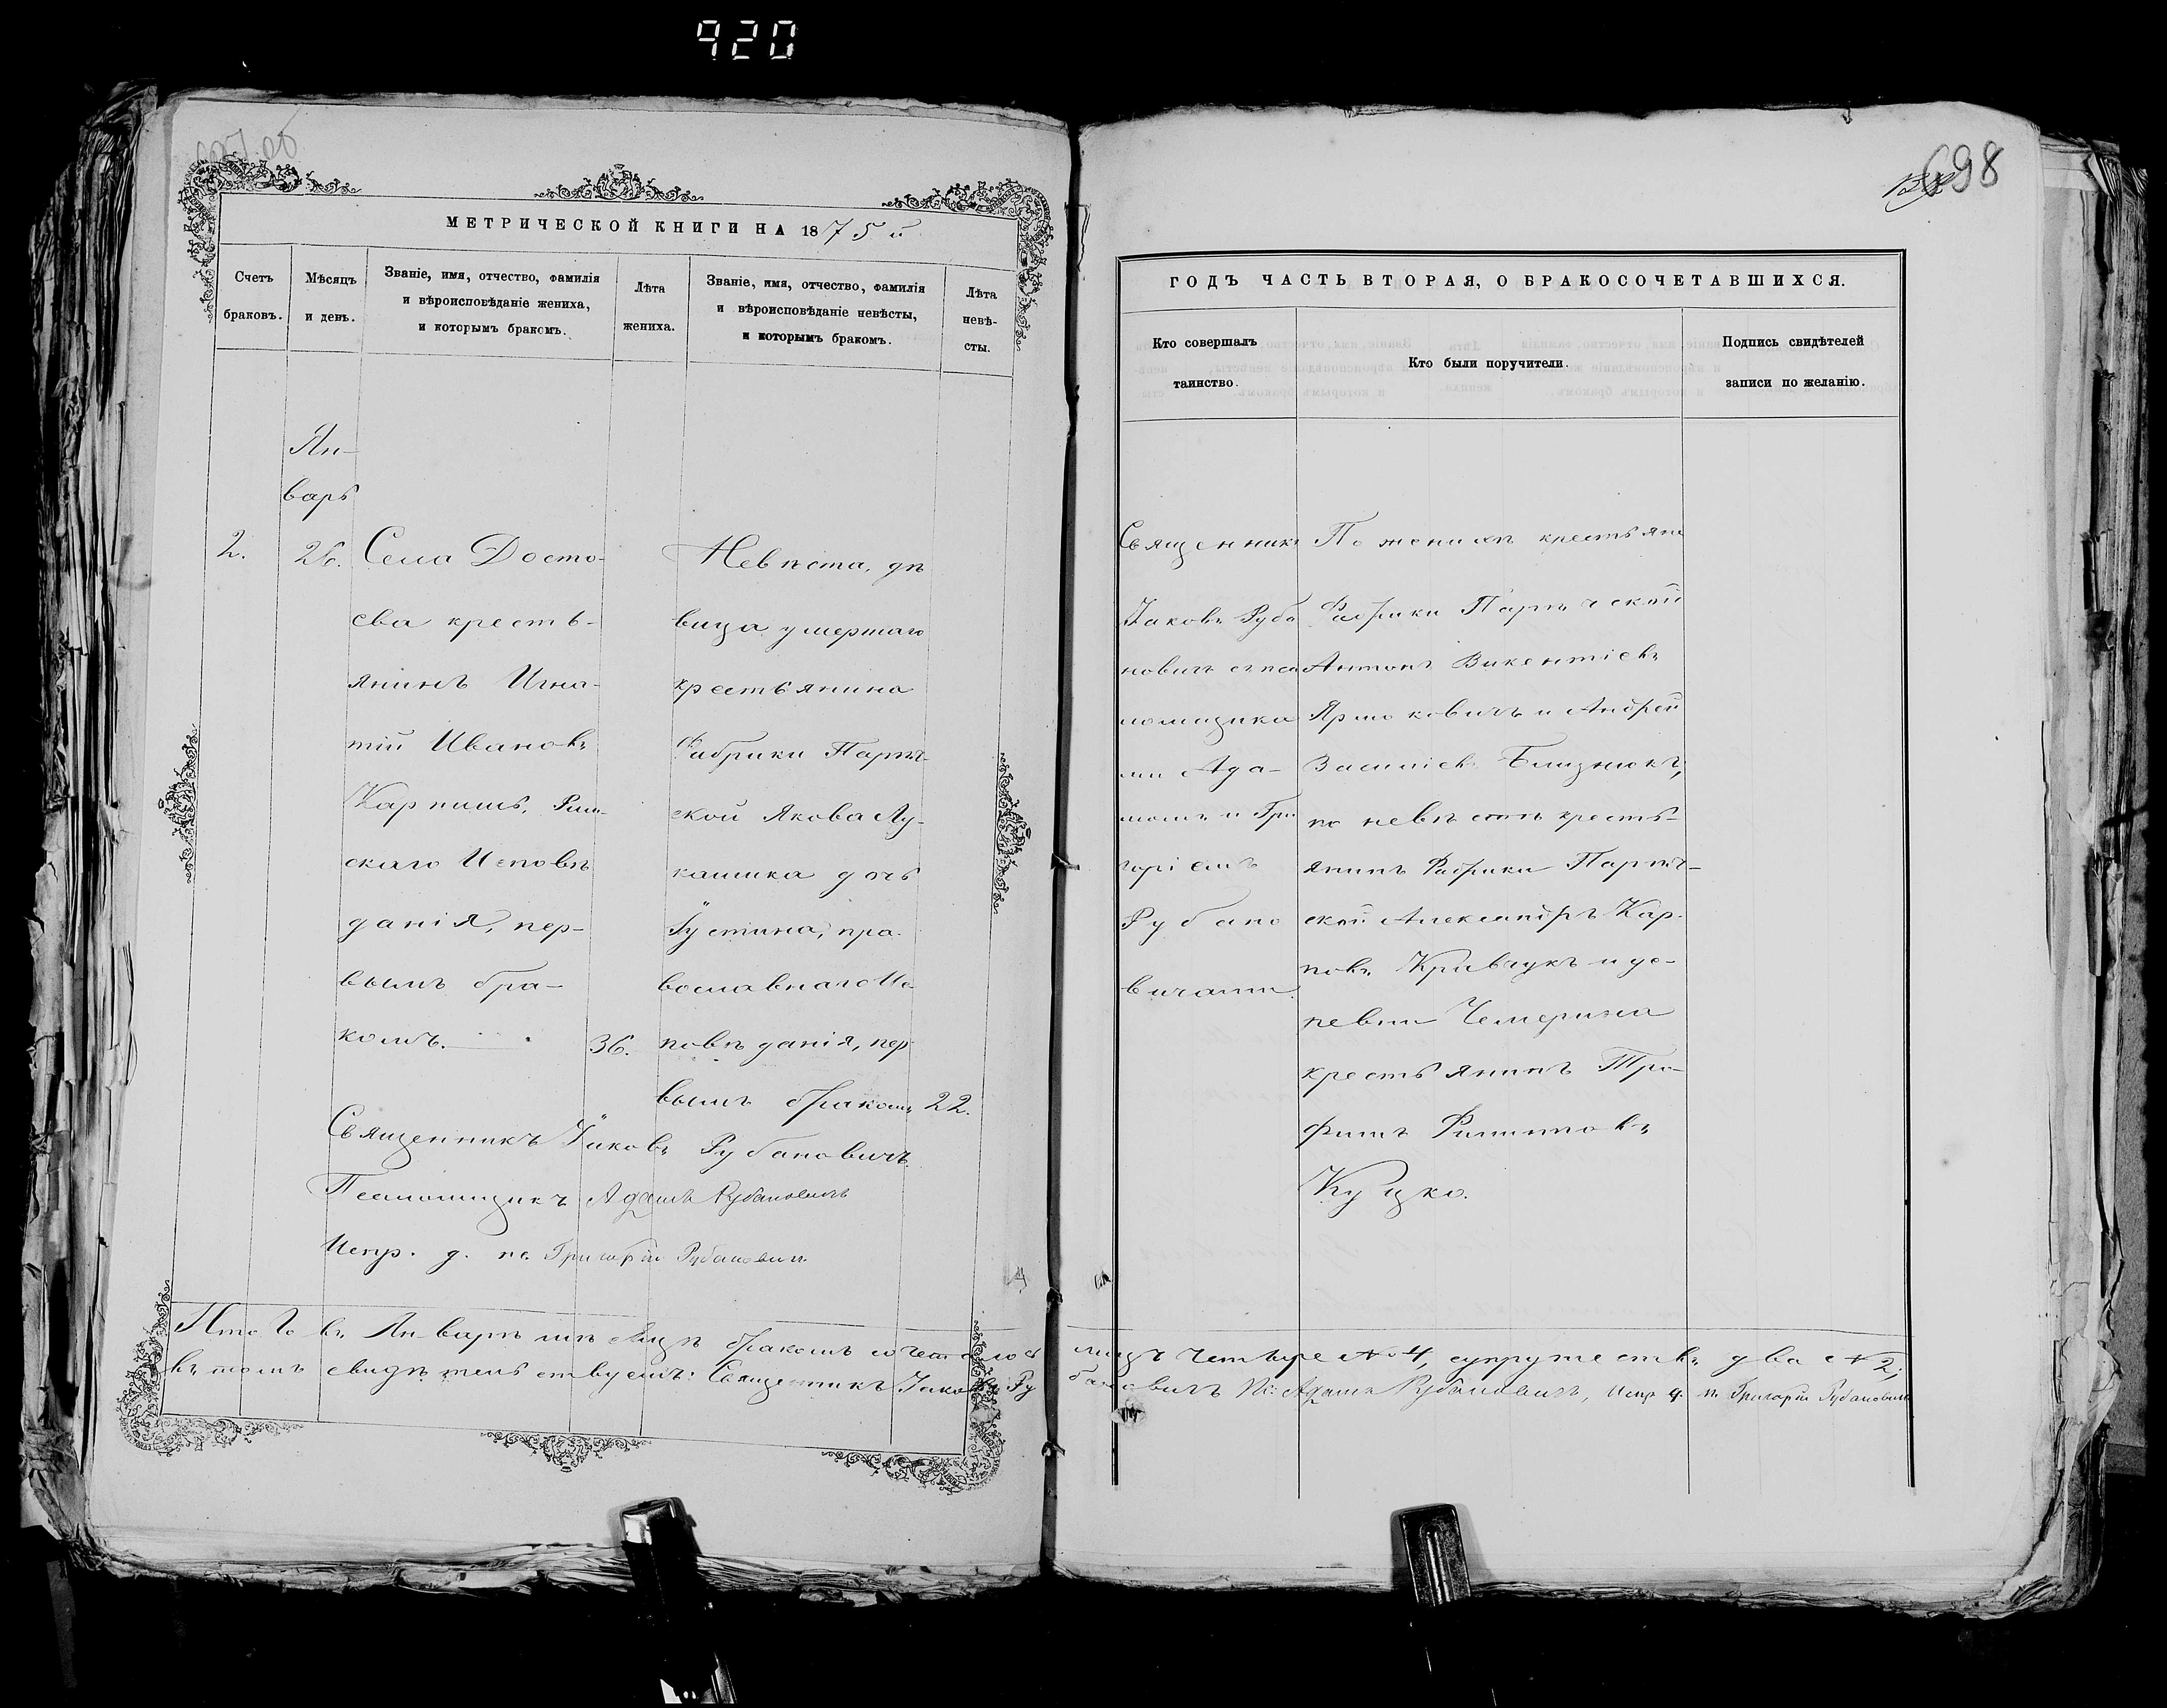 920
697 об
698
МЕТРИЧЕСКОЙ КНИГИ НА 1875 й
Счетъ
браковъ.
Мѣсяцъ
и день.
Званіе, имя, отчество, фамилія
и вѣроисповѣданіе жениха,
и которымъ бракомъ.
Лѣта
жениха.
Званіе, имя, отчество, фамилія
и вѣроисповѣданіе невѣсты,
и которымъ бракомъ.
Лѣта
невѣ-
сты.
Ян-
варь
2.
26.
Села Досто-
ева кресть-
янинъ Игна-
тій Ивановъ
Карпишъ, Рим-
скаго Исповѣ
данія, пер-
вымъ бра-
комъ.
36.
Невѣста, дѣ
вица умершаго
крестьянина
Фабрики Парѣч-
ской Якова Лу-
кашика дочь
Іустина, пра-
вославнаго Ис
повѣданія, пер
вымъ бракомъ
22.
Священникъ Іаковъ Рубановичъ
Псаломщикъ Адамъ Рубановичъ
Испр. д. пс. Григорій Рубановичъ
ГОДЪ ЧАСТЬ ВТОРАЯ, О БРАКОСОЧЕТАВШИХСЯ.
Кто совершалъ
таинство.
Кто были поручители.
Подпись свидѣтелей
записи по желанію.
Священникъ
Іаковъ Руба
новичъ съ пса
ломщика
ми Ада-
момъ и Гри
горіемъ
Рубано
вичами.
По женихѣ крестьяне
Фабрики Парѣчской
Антонъ Викентіевъ
Ярмоковичъ и Андрей
Василіев. Близнюкъ,
по невѣстѣ кресть-
янинъ Фабрики Парѣч-
ской Александръ Кар-
повъ Кравчукъ и де-
ревни Чемерина
крестьянинъ Тро-
фимъ Филиповъ
Куцко.
Итого въ Январѣ мѣсяцѣ бракомъ сочеталось лицъ четыре №4, супружествъ два №2;
въ томъ свидѣтельствуемъ: Священникъ Іаковъ Рубановичъ Пс: Адамъ Рубановичъ, Испр д. п. Григорій Рубановичъ